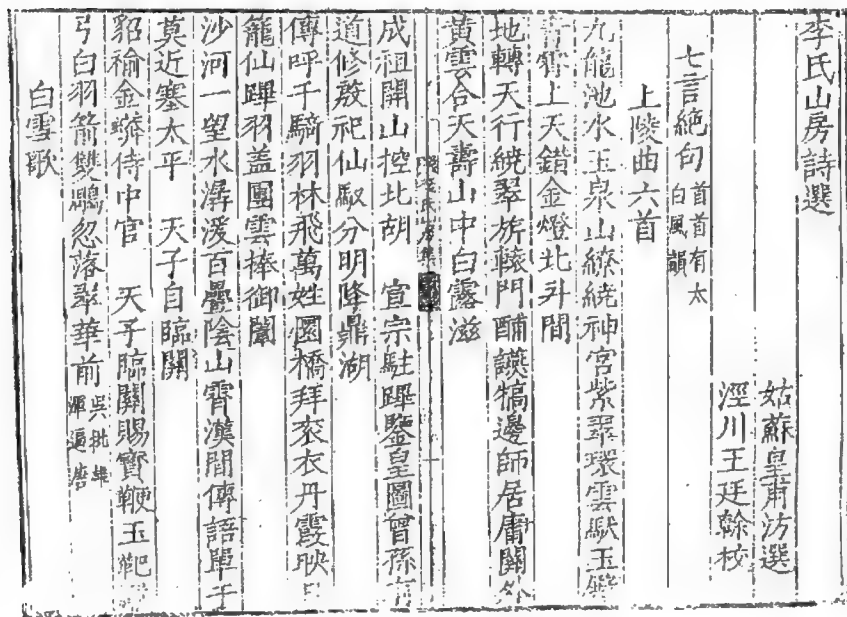 李氏山房詩選
姑蘇皇甫汸選
涇川王廷榦校
七言絶句首首有太白風韻
上陵曲六首
九龍池水玉泉山繚繞神宮紫翠環雲馭玉
青霄上天錯金燈北斗間
地轉天行繞翠旂轅門酺讌犒邊師居庸關外
黃雲合天壽山中白露滋
成祖開山控北胡 宣宗駐蹕鑒皇圖曾孫有
道修殷祀仙馭分明降鼎湖
傳呼千騎羽林飛萬姓圜橋拜衮衣丹霞映
籠仙蹕羽盖團雲捧御闈
沙河一望水潺湲百疊陰山霄漢間傳語單于
莫近塞太平 天子自臨關
貂褕金蟒侍中官 天子臨關賜寶鞭玉靶
弓白羽箭雙鵰忽落翠華前
白雪歌